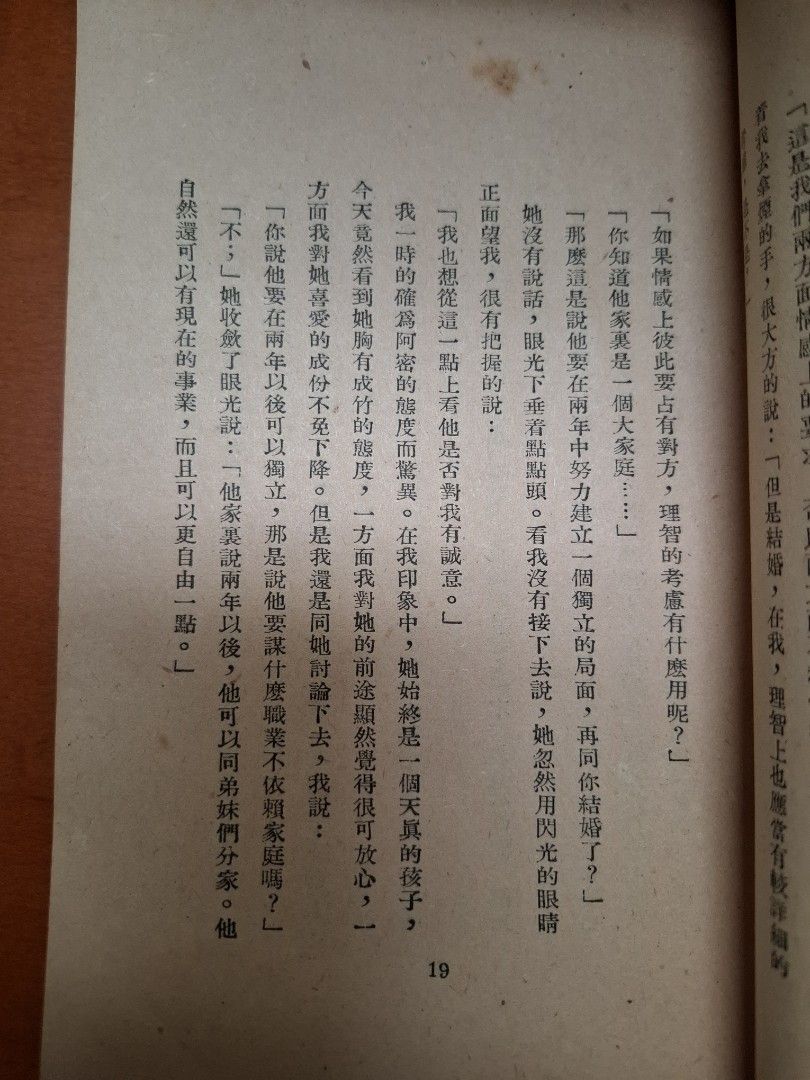 「這是我們兩方面情感上的
看我去拿她的手，很大方的說：「但是結婚，在我，理智上也應當有較詳細的
「如果情感上彼此要占有對方，理智的考慮有什麽用呢？」
「你知道他家裏是一個大家庭……」
「那麽這是說他要在兩年中努力建立一個獨立的局面，再同你結婚了？」
她沒有說話，眼光下垂着點點頭。看我沒有接下去說，她忽然用閃光的眼睛
正面望我，很有把握的說：
「我也想從這一點上看他是否對我有誠意。」
我一時的確爲阿密的態度而驚異。在我印象中，她始終是一個天眞的孩子，
今天竟然看到她胸有成竹的態度，一方面我對她的前途顯然覺得很可放心，一
方面我對她喜愛的成份不免下降。但是我還是同她討論下去，我說：
「你說他要在兩年以後可以獨立，那是說他要謀什麽職業不依賴家庭嗎？」
「不；」她收斂了眼光說：「他家裏說兩年以後，他可以同弟妹們分家。他
自然還可以有現在的事業，而且可以更自由一點。」
19